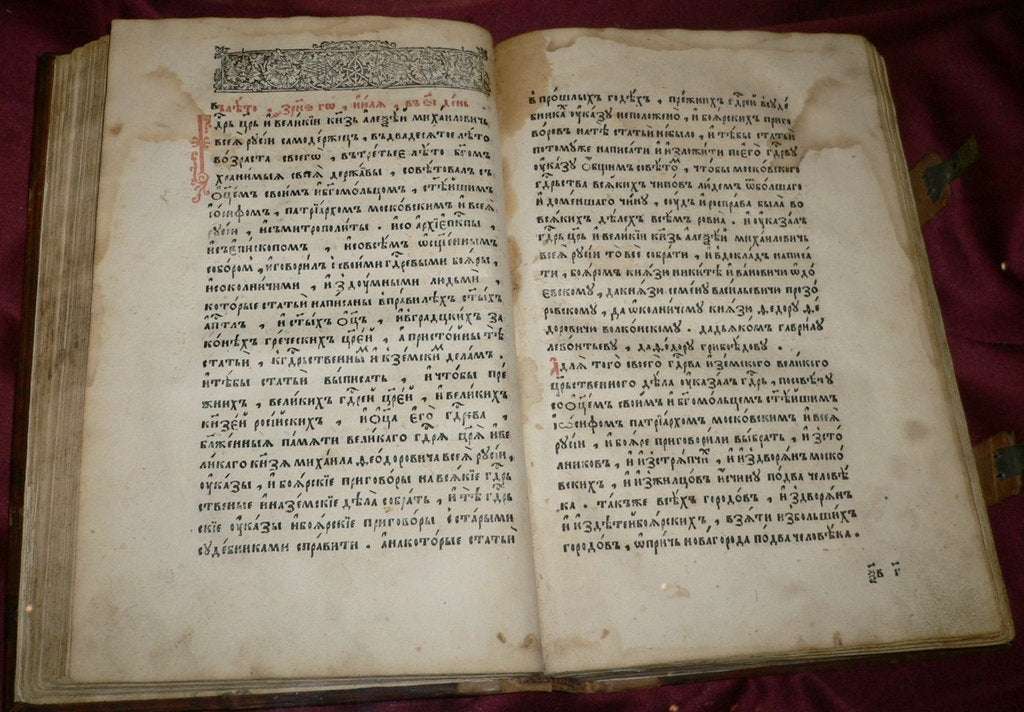 въ лѣто , ҂зрн҃ѕ гѡ , іюля , въ ѕ҃і день
гд҃рь цр҃ь и великіи кн҃зь алеѯѣи михаиловичь
всея русіи самодержецъ , въ двадесятое лѣто
возраста своегѡ , въ третьее лѣто бг҃омъ
хранимыя своя державы , совѣтовалъ съ
ѻц҃емъ своимъ и бг҃омольцомъ , ст҃ѣйшимъ
іѡсифомъ , патріархомъ московскимъ и всея
русіи , и съ митрополиты . и со архіепⷭ҇кпы ,
и съ епⷭ҇копомъ , и со всѣмъ ѡсщ҃еннымъ
соборомъ , и говорилъ с своими гд҃ревыми бояры ,
и с околничими , и з думными людьми ,
которые статьи написаны в правилѣхъ ст҃ыхъ
апⷭ҇тлъ , и ст҃ыхъ ѻц҃ъ , и в градцкихъ за
конѣхъ греческихъ цр҃еи , а пристойны тѣ
статьи , к гд҃рьственнымъ и к земскимъ дѣламъ .
и тѣ бы статьи выписать , и чтобы пре
жнихъ , великихъ гд҃реи цр҃еи , и великихъ
кн҃зеи російскихъ , и ѻц҃а егѡ гд҃рева ,
блаженныя памяти великаго гд҃ря цр҃я и ве
ликаго кн҃зя михаила ѳеодоровича всея русіи ,
оуказы , и боярскіе приговоры на всякіе гд҃рь
ственые и на земскіе дѣла собрать , и тѣ гд҃рь
скіе оуказы и боярскіе приговоры с старыми
судебниками справити . а на которые статьи
в прошлыхъ годѣхъ , прежнихъ гд҃реи в суде
бникахъ оуказу не положено , и боярскихъ приго
воровъ на тѣ статьи не было , и тѣ бы статьи
по тому же написати и изложити по его гд҃рву
оуказу ѻбщимъ совѣтомъ , чтобы московского
гд҃рьства всякихъ чиновъ людемъ ѿ болшаго
и до меншаго чину , судъ и росправа была во
всякихъ дѣлехъ всѣмъ ровна . и оуказалъ
гд҃рь цр҃ь и великіи кн҃зь алеѯѣи михаиловичь
всея русіи то все собрати , и в докладъ написа
ти , бояромъ князю никитѣ ивановичю ѡдо
евскому , да князю семену васильевичю прозо
ровскому , да ѡколничему князю ѳедору ѳе
доровичю волконскому . да дьякомъ гаврилу
левонтьеву , да ѳедору грибоѣдову .
А для того своего гд҃рва и земского великого
цр҃рьственного дѣла оуказалъ гд҃рь , по совѣту
со ѻц҃емъ своимъ и бг҃омольцемъ ст҃ѣйшимъ
іѡсифомъ патріархомъ московскимъ и всея
русіи , и бояре приговорили выбрать , и з сто
лниковъ , и и з стряпчих , и и з дворянъ моско
вскихъ , и и з жилцовъ и с чину по два человѣ
ка . также всѣхъ городовъ , и з дворянъ
и и з дѣтей боярскихъ , взяти из большихъ
городовъ , ѡпричь новагорода по два человѣка .